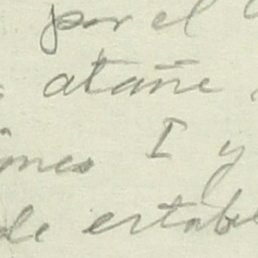 por el
atañe
ones I y
de estable